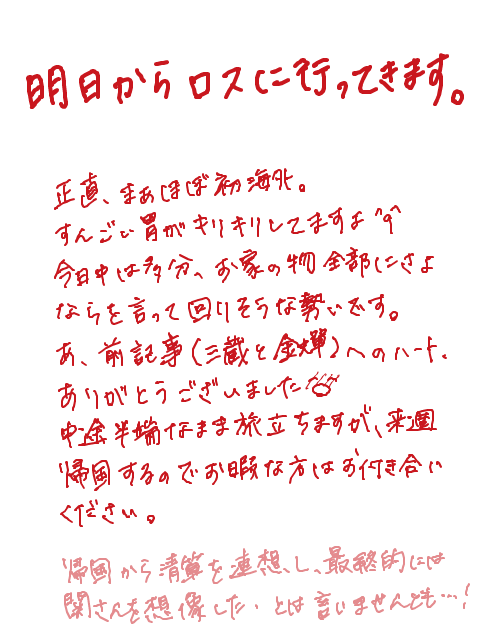 明日からロスに行ってきます。
正直、まぁほぼ初海外。
すんごい胃がキリキリしてますよ^q^
今日中は多分、お家の物全部にさよ
ならを言って回りそうな勢いです。
あ、前記事(三蔵と金蝉)へのハート、
ありがとうございました
中途半端なまま旅立ちますが、来週
帰国するのでお暇な方はお付き合い
ください。
帰国から清算を連想し、最終的には
関さんを想像した、とは言いませんとも…!